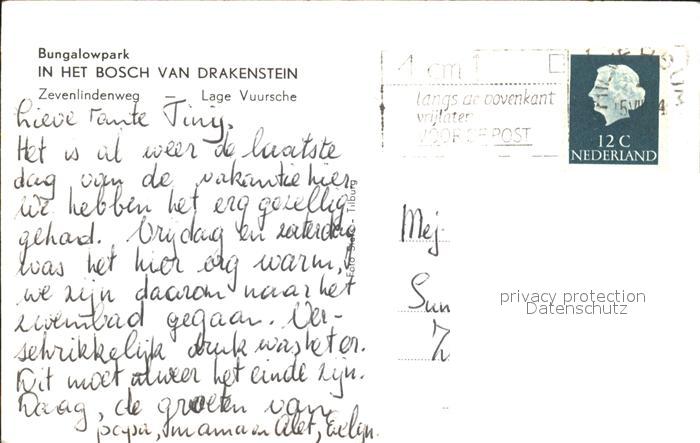 Bungalowpark
IN HET BOSCH VAN DRAKENSTEIN
Zevenlindenweg – Lage Vuursche
Lieve Tante Tiny,
Het is al weer de laatste
dag van de vakantie hier.
We hebben het erg gezellig
gehad. Vrijdag en zaterdag
was het hier erg warm,
we zijn daarom naar het
zwembad gegaan. Ver-
schrikkelijk druk was het er.
Dit moet alweer het einde zijn.
Daag, de groeten van
papa, mama en Alet, Evelyn.
1 cm
langs de bovenkant
vrijlaten
VOOR DE POST
HILVERSUM
12 C
NEDERLAND
Foto Tilburg
Mej
Sun
privacy protection
Datenschutz